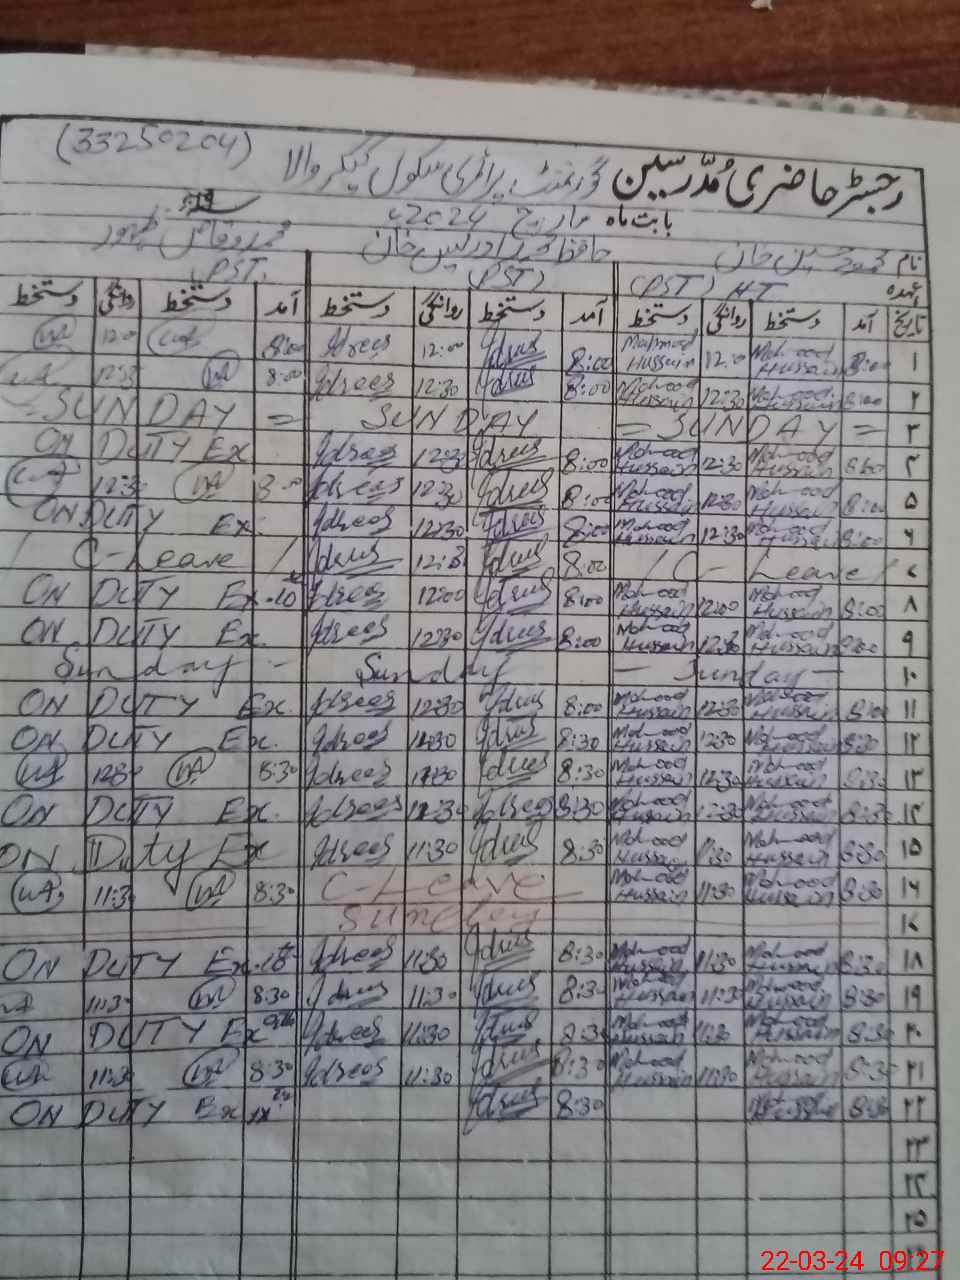 (33250204)
رجسٹر حاضری مُدرسین گورنمنٹ پرائمری سکول ککر والا
بابت ماہ مارچ 2024ء
نام محمود حسین خان حافظ محمد ادریس خان محمد وقاص ظہور
عہدہ (PST) H.T (PST) (PST)
تاریخ آمد دستخط روانگی دستخط آمد دستخط روانگی دستخط آمد دستخط روانگی دستخط
۱ 8:00 Mahmood Hussain 12:00 Mahmood Hussain 8:00 Idrees 12:00 Idrees 8:00 12:00
۲ 8:00 Mahmood Hussain 12:30 Mahmood Hussain 8:00 Idrees 12:30 Idrees 8:00 12:30
۳ = SUNDAY = SUNDAY = SUNDAY =
۴ 8:00 Mahmood Hussain 12:30 Mahmood Hussain 8:00 Idrees 12:30 Idrees ON DUTY Ex
۵ 8:00 Mahmood Hussain 12:30 Mahmood Hussain 8:00 Idrees 12:30 Idrees 8:00 12:30
۶ 8:00 Mahmood Hussain 12:30 Mahmood Hussain 8:00 Idrees 12:30 Idrees ON DUTY Ex.
۷ / C-Leave / 8:00 Idrees 12:30 Idrees / C-Leave /
۸ 8:00 Mahmood Hussain 12:00 Mahmood Hussain 8:00 Idrees 12:00 Idrees ON DUTY Ex.
۹ 8:00 Mahmood Hussain 12:30 Mahmood Hussain 8:00 Idrees 12:30 Idrees ON DUTY Ex
۱۰ - Sunday - Sunday Sunday -
۱۱ 8:00 Mahmood Hussain 12:30 Mahmood Hussain 8:00 Idrees 12:30 Idrees ON DUTY Ex.
۱۲ 8:30 Mahmood Hussain 12:30 Mahmood Hussain 8:30 Idrees 12:30 Idrees ON DUTY Ex.
۱۳ 8:30 Mahmood Hussain 12:30 Mahmood Hussain 8:30 Idrees 12:30 Idrees 8:30 12:30
۱۴ 8:30 Mahmood Hussain 12:30 Mahmood Hussain 8:30 Idrees 12:30 Idrees ON DUTY Ex.
۱۵ 8:30 Mahmood Hussain 11:30 Mahmood Hussain 8:30 Idrees 11:30 Idrees ON Duty Ex
۱۶ 8:30 Mahmood Hussain 11:30 Mahmood Hussain C-Leave 8:30 11:30
۱۷ Sunday
۱۸ 8:30 Mahmood Hussain 11:30 Mahmood Hussain 8:30 Idrees 11:30 Idrees ON DUTY Ex.
۱۹ 8:30 Mahmood Hussain 11:30 Mahmood Hussain 8:30 Idrees 11:30 Idrees 8:30 11:30
۲۰ 8:30 Mahmood Hussain 11:30 Mahmood Hussain 8:30 Idrees 11:30 Idrees ON DUTY Ex
۲۱ 8:30 Mahmood Hussain 11:30 Mahmood Hussain 8:30 Idrees 11:30 Idrees 8:30 11:30
۲۲ 8:30 Mahmood Hussain 8:30 Idrees ON DUTY Ex
۲۳
۲۴
۲۵
22-03-24 09:27